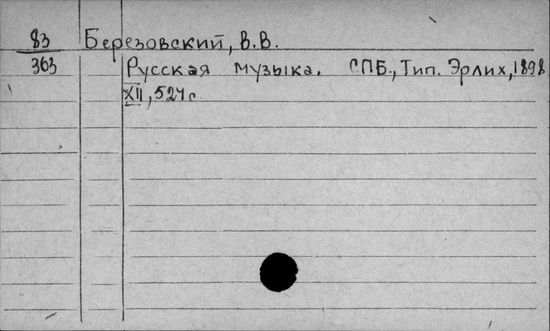 83 Березовский, В.В.
363 Русская музыка. СПБ., Тип. Эрлих, 1898
XII, 524 с